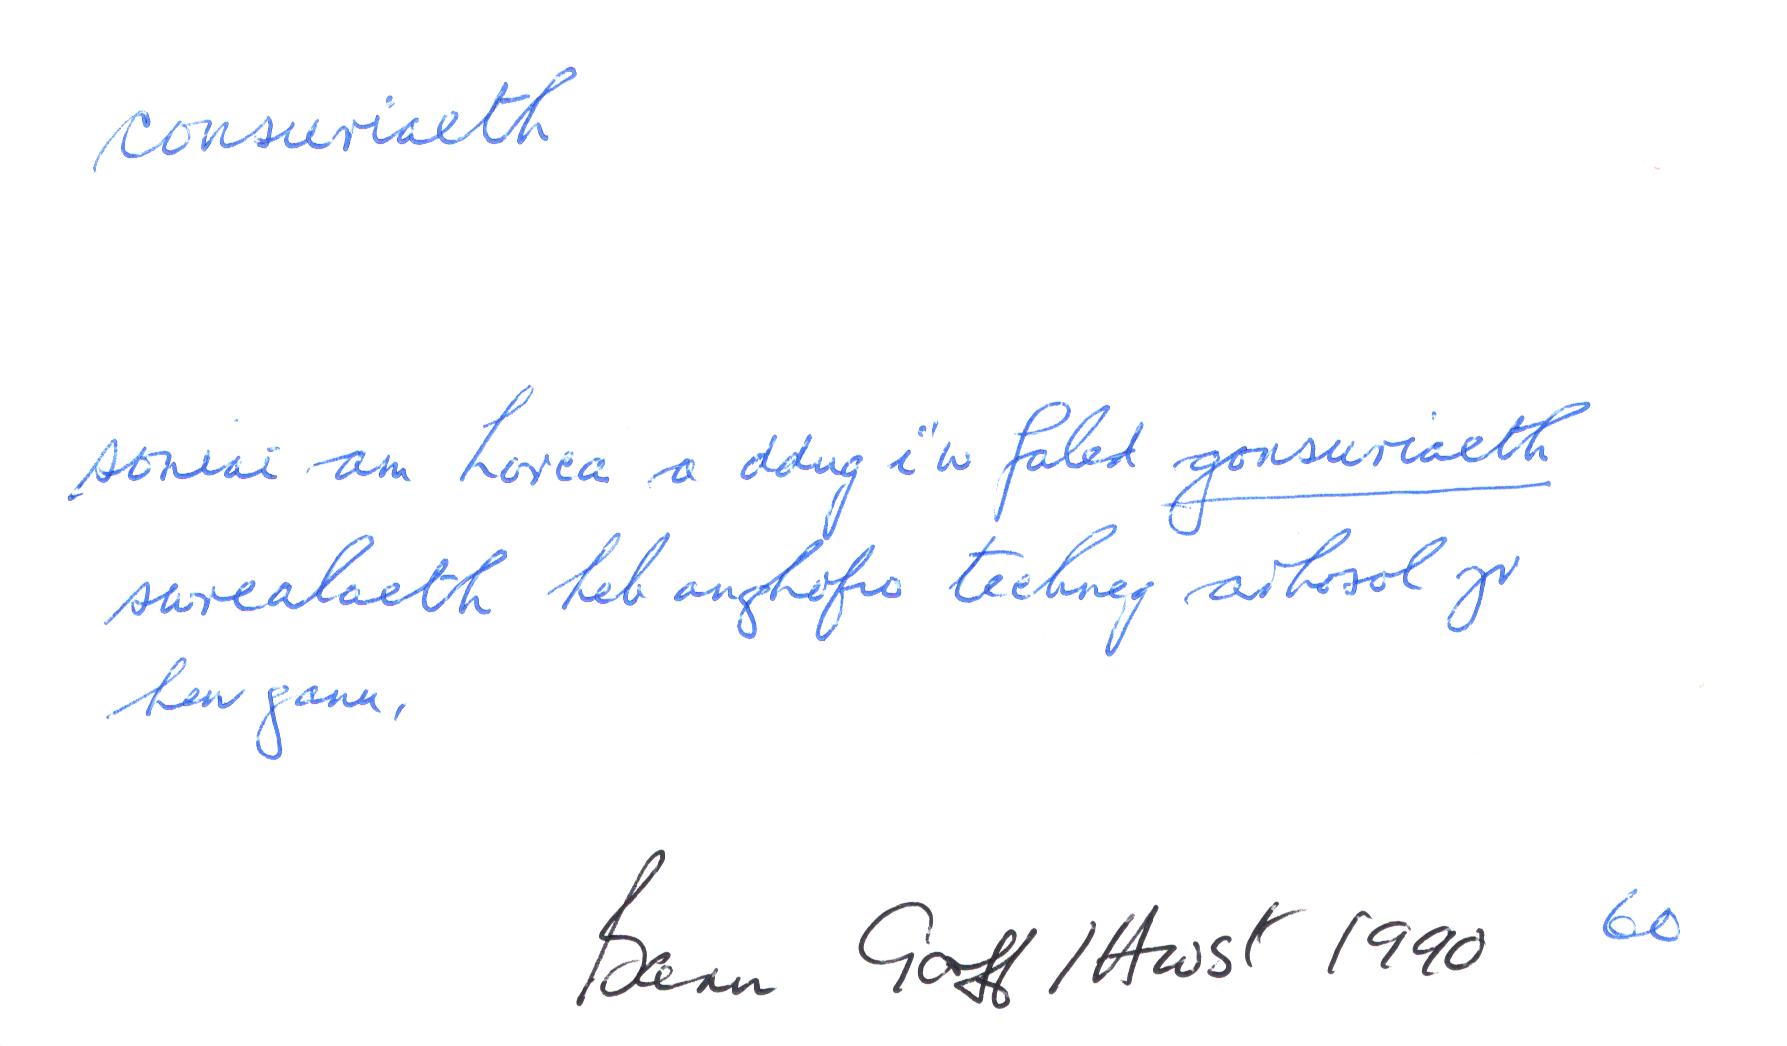 consuriaeth
soniai am Lorca a ddug i'w faled gonsuriaeth
swrealaeth heb anghofio techneg arhosol yr
hen ganu.
Barn Gorff/Awst 1990 60